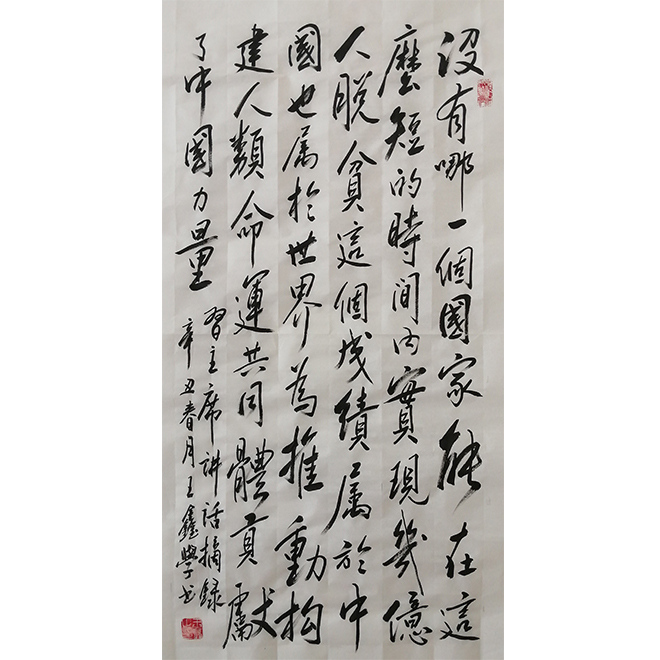 没有哪一個國家能在這
麼短的時間内實現幾億
人脱貧這個成績属於中
國也属於世界為推動构
建人類命運共同體貢獻
了中國力量
習主席講話摘録
辛丑春月王鑫學书